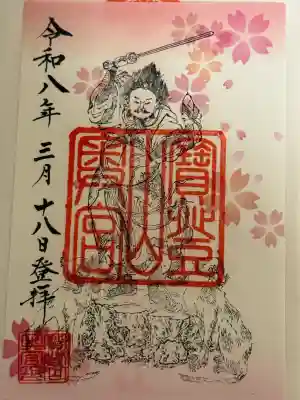 寶登山
奥宮
令和八年三月十八日登拝